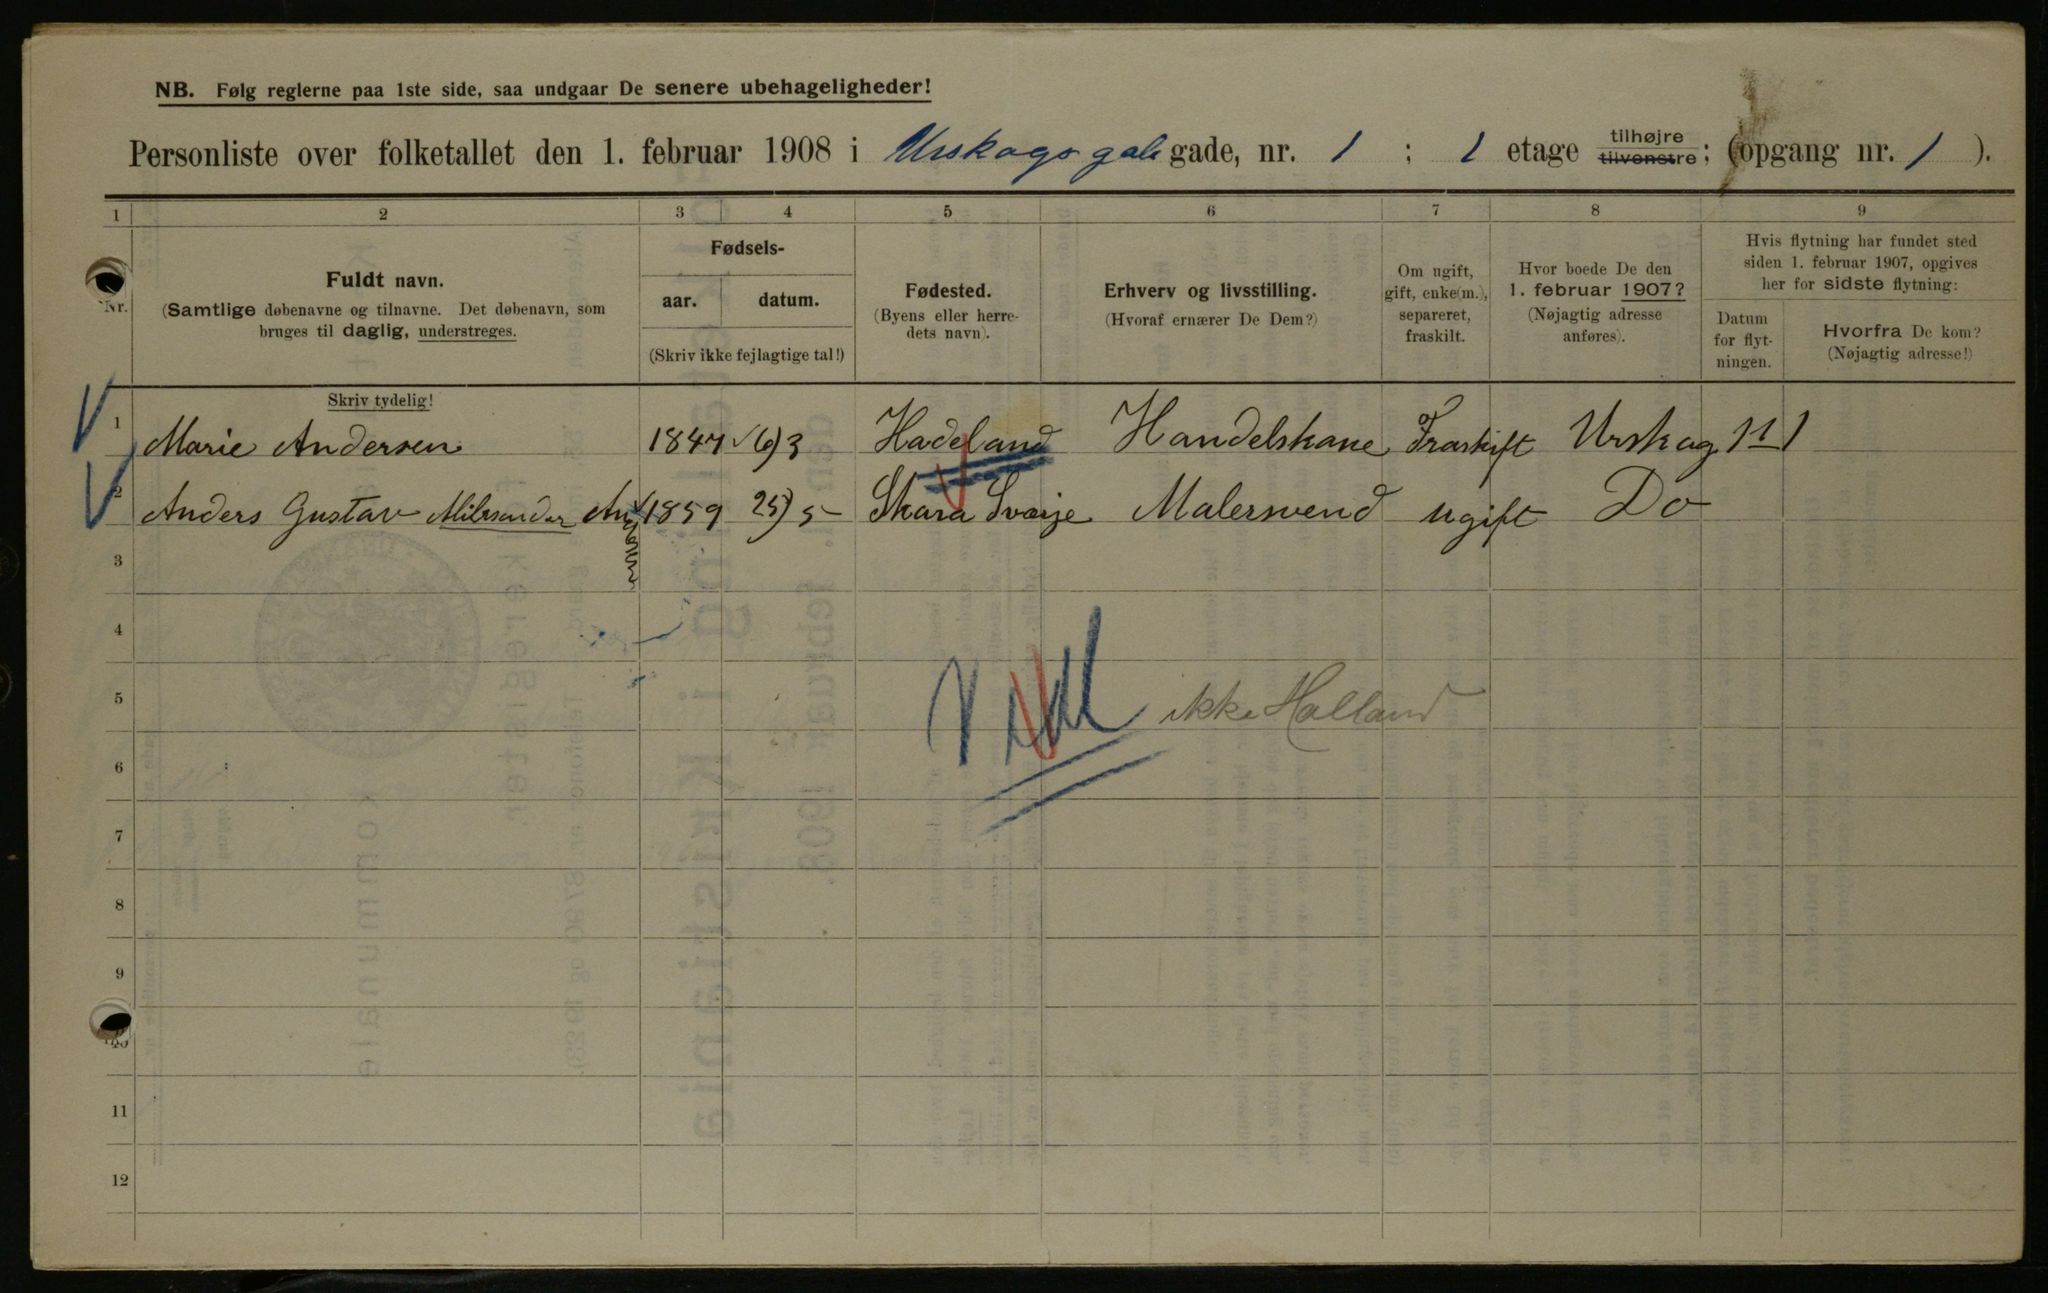 NB. Følg reglerne paa 1ste side, saa undgaar De senere ubehageligheder!
Personliste over folketallet den 1. februar 1908 i Urskogs gade gade, nr. 1 ; 1 etage tilhøjre tilvenstre ; (opgang nr. 1 ).
1 2 3 4 5 6 7 8 9
Nr.
Fuldt navn.
(Samtlige døbenavne og tilnavne. Det døbenavn, som
bruges til daglig, understreges.
Fødsels-
aar. datum.
(Skriv ikke fejlagtige tal!)
Fødested.
(Byens eller herre-
dets navn).
Erhverv og livsstilling.
(Hvoraf ernærer De Dem?)
Om ugift,
gift, enke(m.),
separeret,
fraskilt.
Hvor boede De den
1. februar 1907?
(Nøjagtig adresse
anføres).
Hvis flytning har fundet sted
siden 1. februar 1907, opgives
her for sidste flytning:
Datum
for flyt-
ningen.
Hvorfra De kom?
(Nøjagtig adresse!)
Skriv tydelig!
1 Marie Andersen 1847 6/3 Hadeland Handelskone Fraskift Urskog 1
2 Anders Gustav 1859 25/5 Skara Sverje Malersvend ugift Do
3
4
5 ikke Halland
6
7
8
9
10
11
12